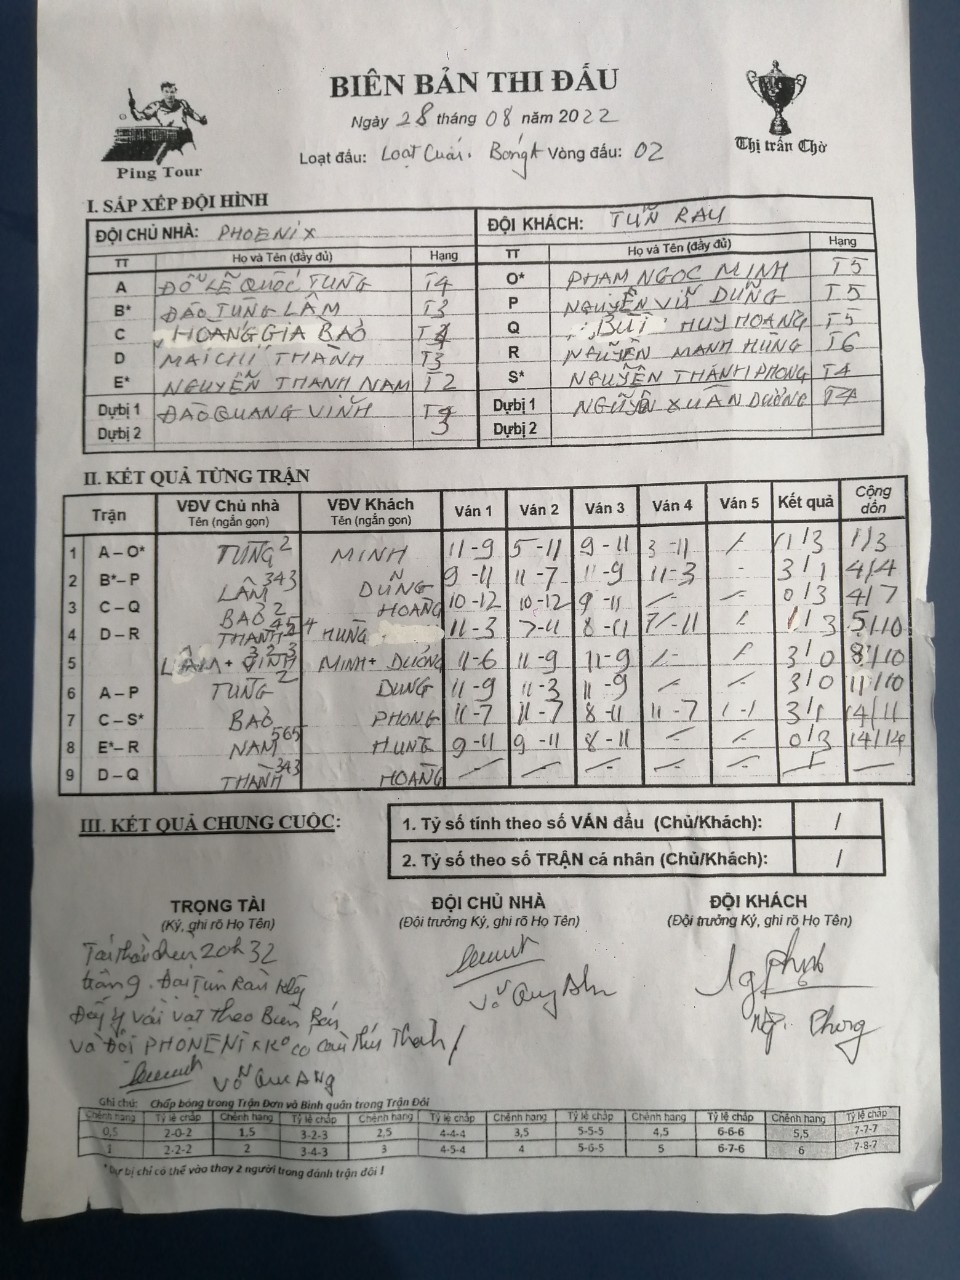 BIÊN BẢN THI ĐẤU
Ngày 28 tháng 08 năm 2022
Loạt đấu: Loạt Cuối. Bảng A Vòng đấu: 02
Ping Tour
Thị trấn Chờ
I. SẮP XẾP ĐỘI HÌNH
ĐỘI CHỦ NHÀ: PHOENIX ĐỘI KHÁCH: TUẤN RAY
TT Họ và Tên (đầy đủ) Hạng TT Họ và Tên (đầy đủ) Hạng
A ĐỖ LÊ QUỐC TÙNG T4 O* PHẠM NGỌC MINH T5
B* ĐÀO TÙNG LÂM T3 P NGUYỄN VŨ DŨNG T5
C HOÀNG GIA BẢO Q BÙI HUY HOÀNG T5
D MAI CHÍ THÀNH T3 R NGUYỄN MẠNH HÙNG T6
E* NGUYỄN THANH NAM T2 S* NGUYỄN THANH PHONG T4
Dự bị 1 ĐÀO QUANG VINH 3 Dự bị 1 NGUYỄN XUÂN DƯƠNG T4
Dự bị 2 Dự bị 2
II. KẾT QUẢ TỪNG TRẬN
Trận VĐV Chủ nhà Tên (ngắn gọn) VĐV Khách Tên (ngắn gọn) Ván 1 Ván 2 Ván 3 Ván 4 Ván 5 Kết quả Cộng dồn
1 A – O* TÙNG 2 MINH 11-9 5-11 9-11 3-11 / 1/3 1/3
2 B* – P LÂM 343 DŨNG 9-11 11-7 11-9 11-3 - 3/1 4/4
3 C – Q BẢO 2 HOÀNG 10-12 10-12 9-11 - 0/3 4/7
4 D – R THÀNH 454 HÙNG 11-3 7-11 8-11 7-11 / 1/3 5/10
5 LÂM + VINH 323 MINH + DƯƠNG 11-6 11-9 11-9 - 3/0 8/10
6 A – P TÙNG 2 DŨNG 11-9 11-3 11-9 - - 3/0 11/10
7 C – S* BẢO PHONG 11-7 11-7 8-11 11-7 - 3/1 14/11
8 E* – R NAM 565 HÙNG 9-11 9-11 8-11 - - 0/3 14/14
9 D – Q THÀNH 343 HOÀNG - - - - - - -
III. KẾT QUẢ CHUNG CUỘC:
1. Tỷ số tính theo số VÁN đấu (Chủ/Khách): /
2. Tỷ số theo số TRẬN cá nhân (Chủ/Khách): /
TRỌNG TÀI ĐỘI CHỦ NHÀ ĐỘI KHÁCH
(Ký, ghi rõ Họ Tên) (Đội trưởng Ký, ghi rõ Họ Tên) (Đội trưởng Ký, ghi rõ Họ Tên)
20h 32
trận 9. Đội Tuấn Ray
theo Biên Bản
và Đội PHOENIX
Ng. Phong
Ghi chú: Chấp bóng trong Trận Đơn và Bình quân trong Trận Đôi
Chênh hạng Tỷ lệ chấp Chênh hạng Tỷ lệ chấp Chênh hạng Tỷ lệ chấp Chênh hạng Tỷ lệ chấp Chênh hạng Tỷ lệ chấp Chênh hạng Tỷ lệ chấp
0,5 2-0-2 1,5 3-2-3 2,5 4-4-4 3,5 5-5-5 4,5 6-6-6 5,5 7-7-7
1 2-2-2 2 3-4-3 3 4-5-4 4 5-6-5 5 6-7-6 6 7-8-7
*Dự bị chỉ có thể vào thay 2 người trong đánh trận đôi !